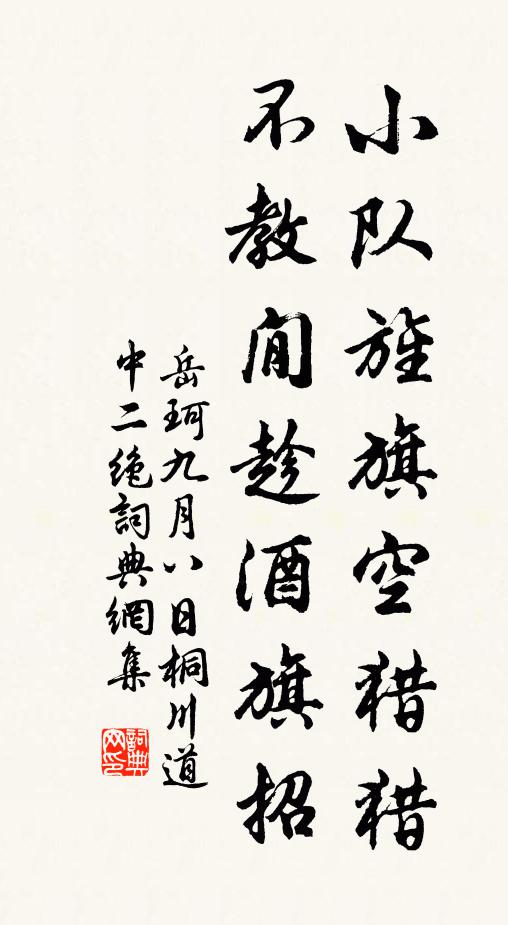 小队旌旗空猎猎
不教閒趁酒旗招
岳珂九月八日桐川道
中二绝詞典網集
詞典
网印